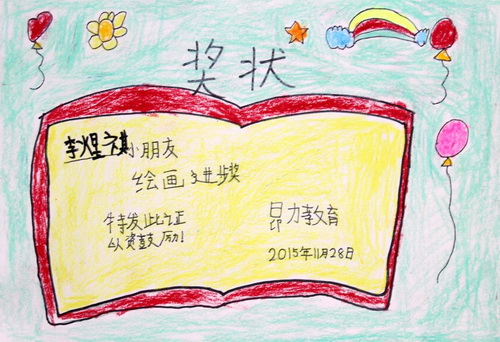 奖状
李煋祺小朋友
绘画进步奖
特发此证
以资鼓励!
昂力教育
2015年11月28日